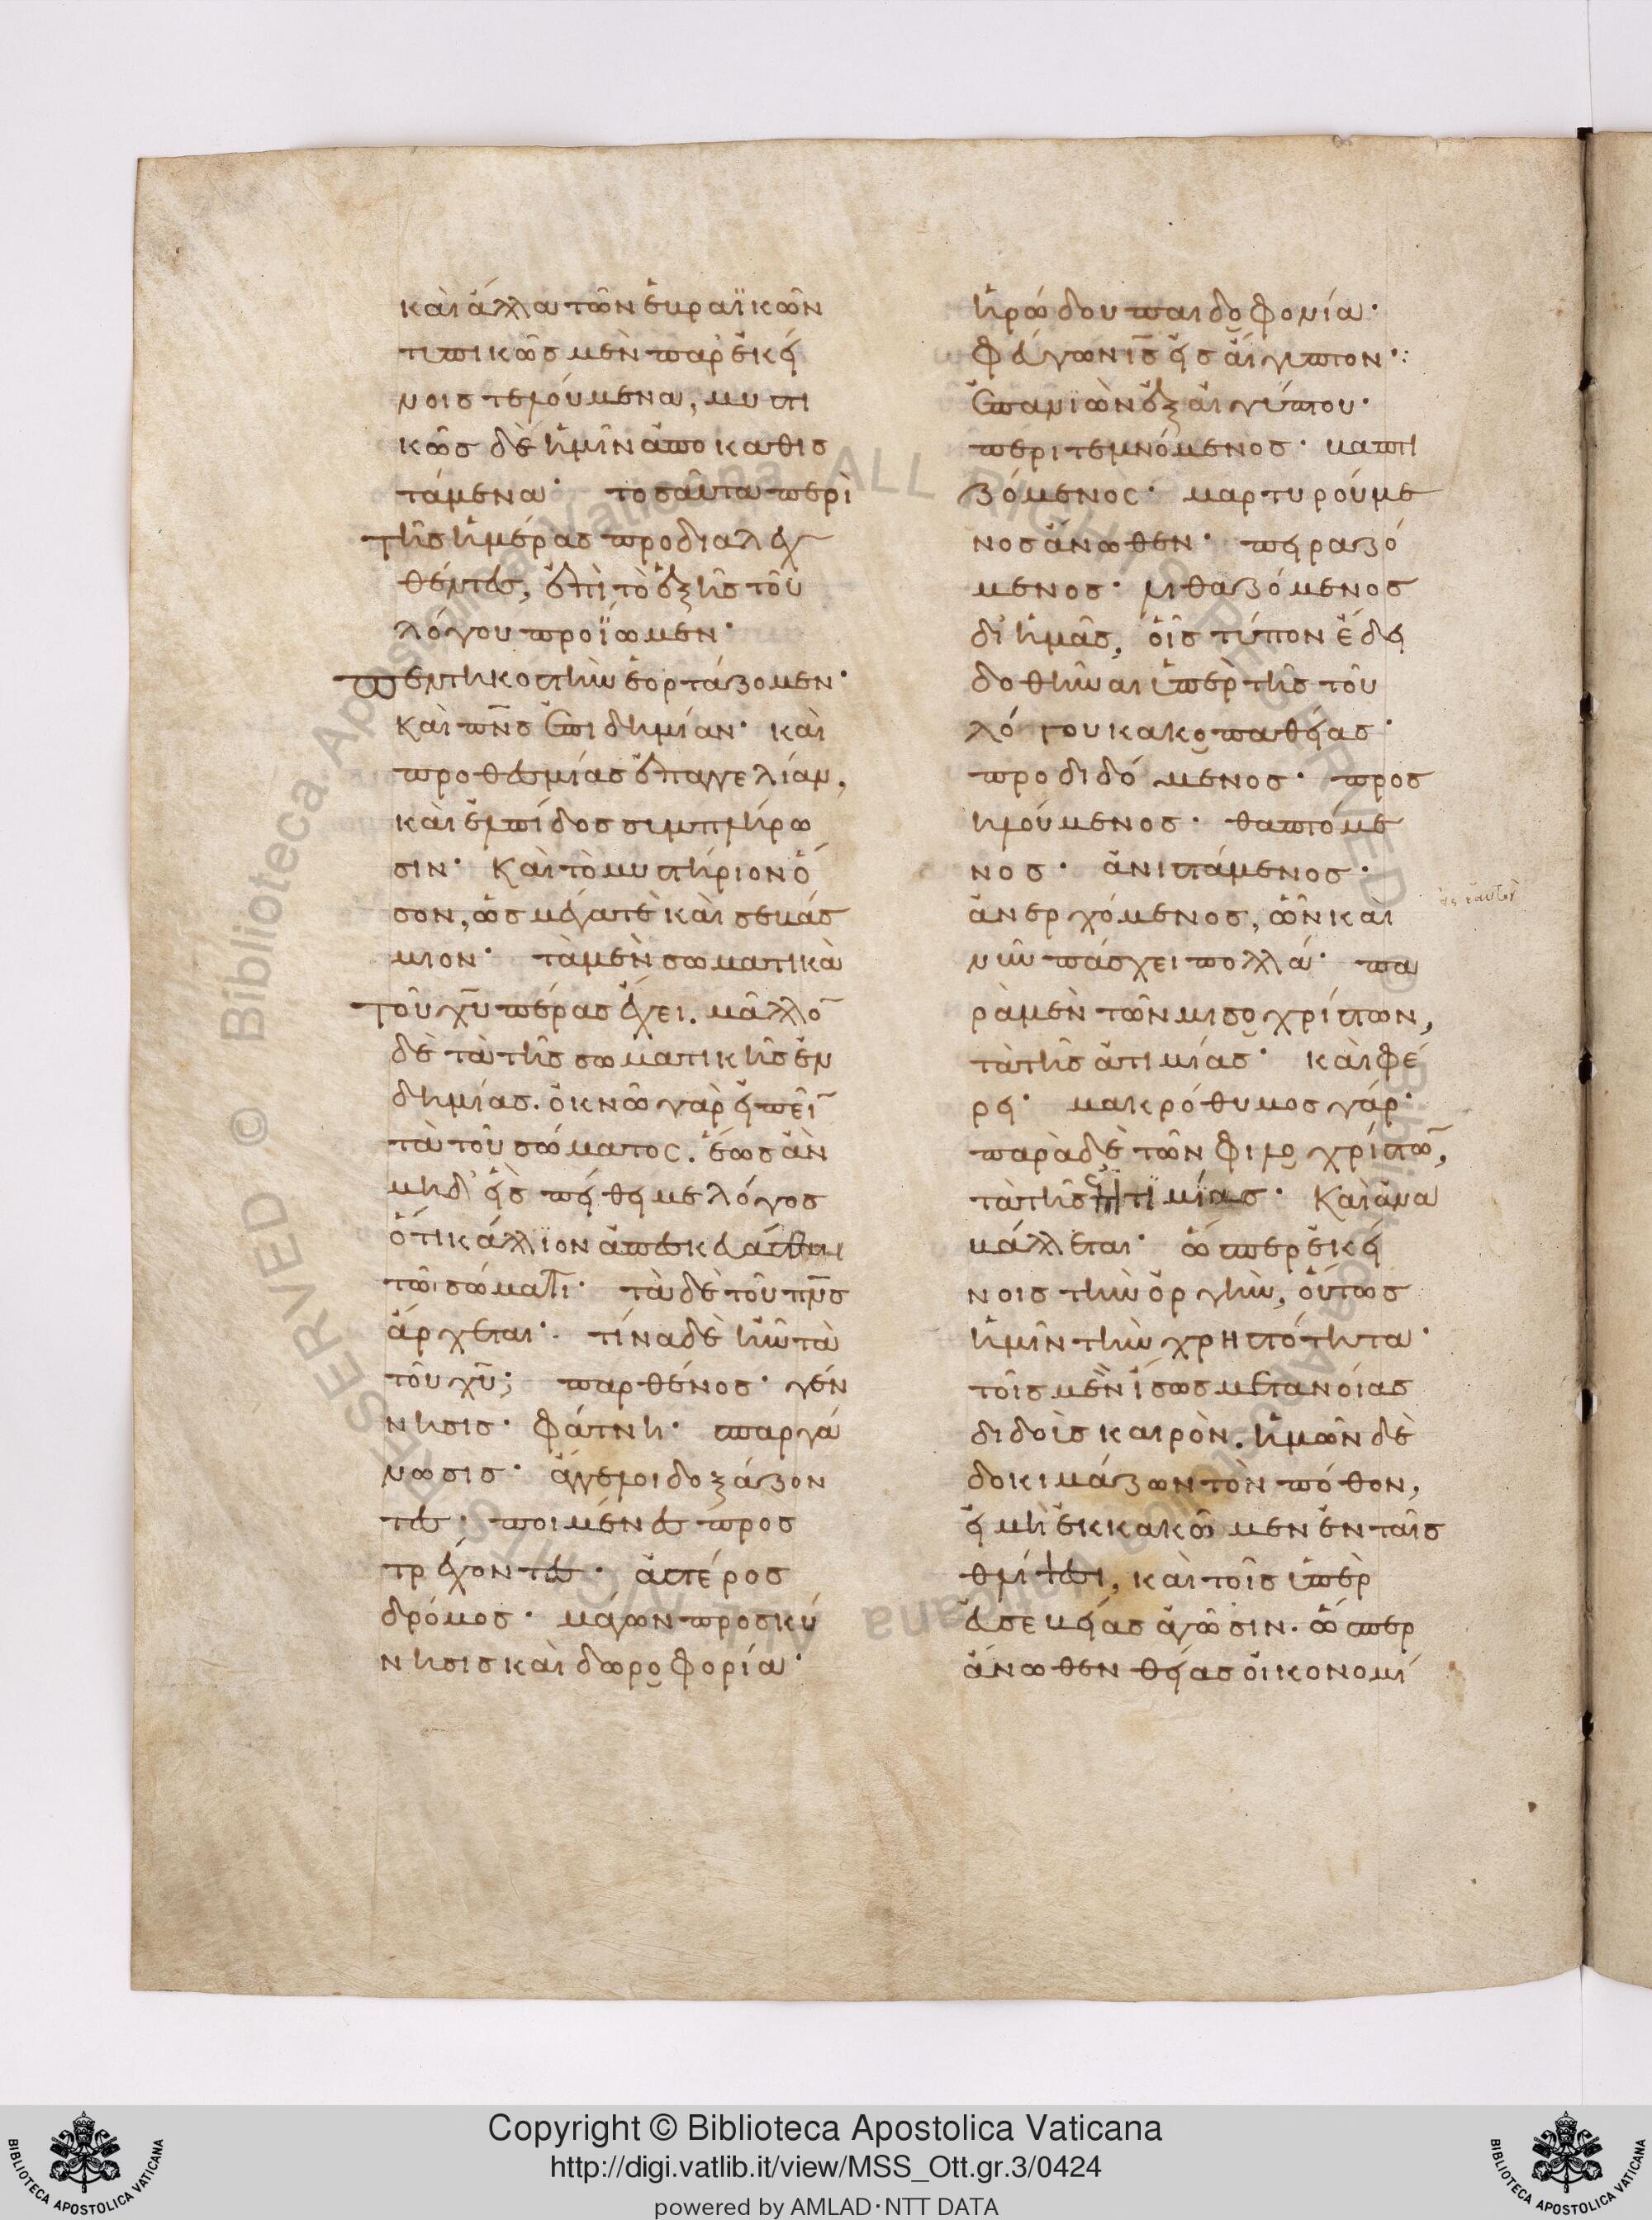 καὶ ἄλλα τῶν ἑβραϊκῶν
τυπικῶς μὲν παρ' ἐκεί
νοις τελούμενα, μυστι
κῶς δὲ ἡμῖν ἀποκαθισ
τάμενα· τοσαῦτα περὶ
τῆς ἡμέρας προδιαλεχ
θέντες, ἐπὶ τὸ ἑξῆς τοῦ
λόγου προΐωμεν·
πεντηκοστὴν ἑορτάζομεν·
καὶ πν̅ς ἐπιδημίαν· καὶ
προθεσμίας ἐπαγγελίαν,
καὶ ἐλπίδος συμπλήρω
σιν· καὶ τὸ μυστήριον ὅ
σον, ὡς μέγα τὲ καὶ σεβάσ
μιον· τὰ μὲν σωματικὰ
τοῦ χ̅υ πέρας ἔχει. μᾶλλο̅
δὲ τὰ τῆς σωματικῆς ἐν
δημίας. ὀκνῶ γὰρ εἰπεῖ̅
τὰ τοῦ σώματος. ἕως ἂν
μηδ' εἷς πείθει με λόγος
ὅτι κάλλιον ἀπεσκευάσθαι
τῶι σώματι· τὰ δὲ τοῦ πν̅ς
ἄρχεται· τίνα δὲ ἦν τὰ
τοῦ χ̅υ; παρθένος· γέν
νησις· φάτνη· σπαργά
νωσις· ἄγγελοι δοξάζον
τες· ποιμένες προσ
τρέχοντες· ἀστέρος
δρόμος· μάγων προσκύ
νησις καὶ δωροφορία·
ἡρώδου παιδοφονία·
φεύγων ι̅ς εἰς αἴγυπτον·:
ἐπανιὼν ἐξ αἰγύπτου·
περιτεμνόμενος· βαπτι
ζόμενος· μαρτυρούμε
νος ἄνωθεν· πειραζό
μενος· λιθαζόμενος
δι' ἡμᾶς, οἷς τύπον ἔδει
δοθῆναι ὑπὲρ τῆς τοῦ
λόγου κακοπαθείας·
προδιδόμενος· προσ
ηλούμενος· θαπτόμε
νος· ἀνιστάμενος·
ἀνερχόμενος, ὧν καὶ
νῦν πάσχει πολλά· πα
ρὰ μὲν τῶν μισοχρίστων,
τὰ τῆς ἀτιμίας· καὶ φέ
ρει· μακρόθυμος γάρ·
παρὰ δὲ τῶν φιλοχρίστω̅,
τὰ τῆς τιμίας· καὶ ἀνα
βάλλεται· ὥσπερ ἐκεί
νοις τὴν ὀργὴν, οὕτως
ἡμῖν τὴν χρηστότητα·
τοῖς μὲν ἴσως μετανοίας
διδοὺς καιρὸν. ἡμῶν δὲ
δοκιμάζων τὸν πόθον,
εἰ μὴ ἐκκακῶμεν ἐν ταῖς
θλίψεσι, καὶ τοῖς ὑπὲρ
εὐσεβείας ἀγῶσιν. ὥσπερ
ἄνωθεν θείας οἰκονομί
Copyright © Biblioteca Apostolica Vaticana
http://digi.vatlib.it/view/MSS_Ott.gr.3/0424
powered by AMLAD·NTT DATA